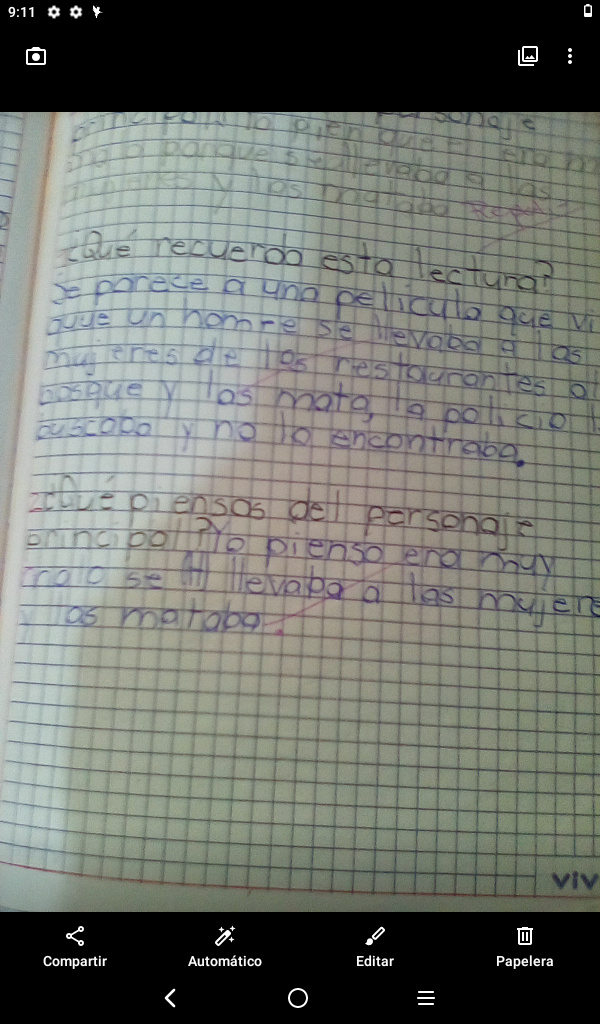 9:11
personaje
principal? Yo pien que el era m
malo porque se llevaba a las
mujeres y las mataba
¿Qué recuerda esta lectura?
Se parece a una pelicula que vi
que un hom-e se llevaba a las
mujeres de los restaurantes al
bosque y las mata, la policia l
buscaba y no lo encontraba.
¿Qué piensas del personaje
principal? Yo pienso era muy
malo se llevaba a las mujere
y las mataba.
viv
Compartir Automático Editar Papelera